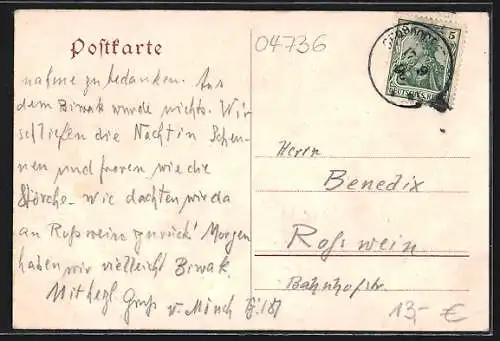 Postkarte
04736
5
nahme zu bedanken. Aus
dem Biwak wurde nichts. Wir
schliefen die Nacht in Scheu-
nen und froren wie die
Störche. Wie dachten wir da
an Roßwein zurück! Morgen
haben wir vielleicht Biwak.
Mit herzl. Gruß v. Mönch
Herrn
Benedix
Roßwein
Bahnhofstr.
13,- €